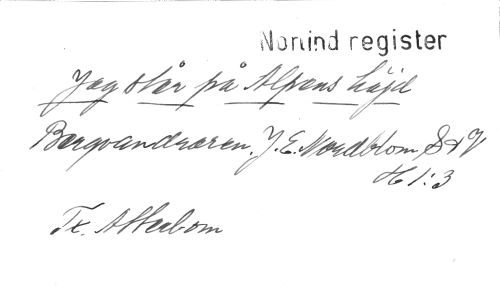 Norlind register
Jag står på Alpens höjd
Bergvandraren. J. E. Nordblom S & V
H 1:3
Tx. Atterbom